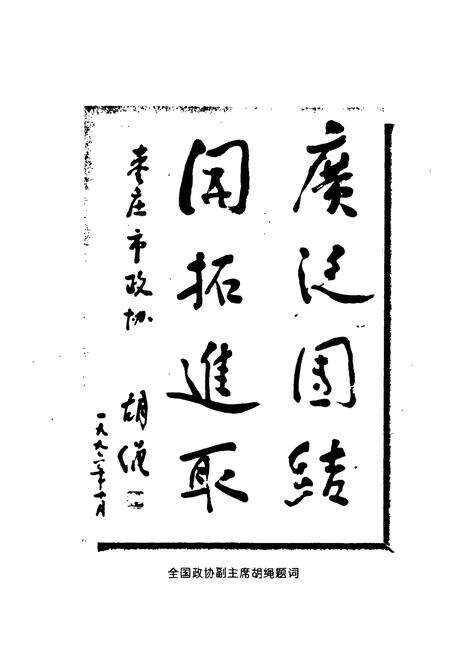 廣泛團結
開拓進取
枣庄市政协
胡绳
一九九二年十月
全国政协副主席胡绳题词